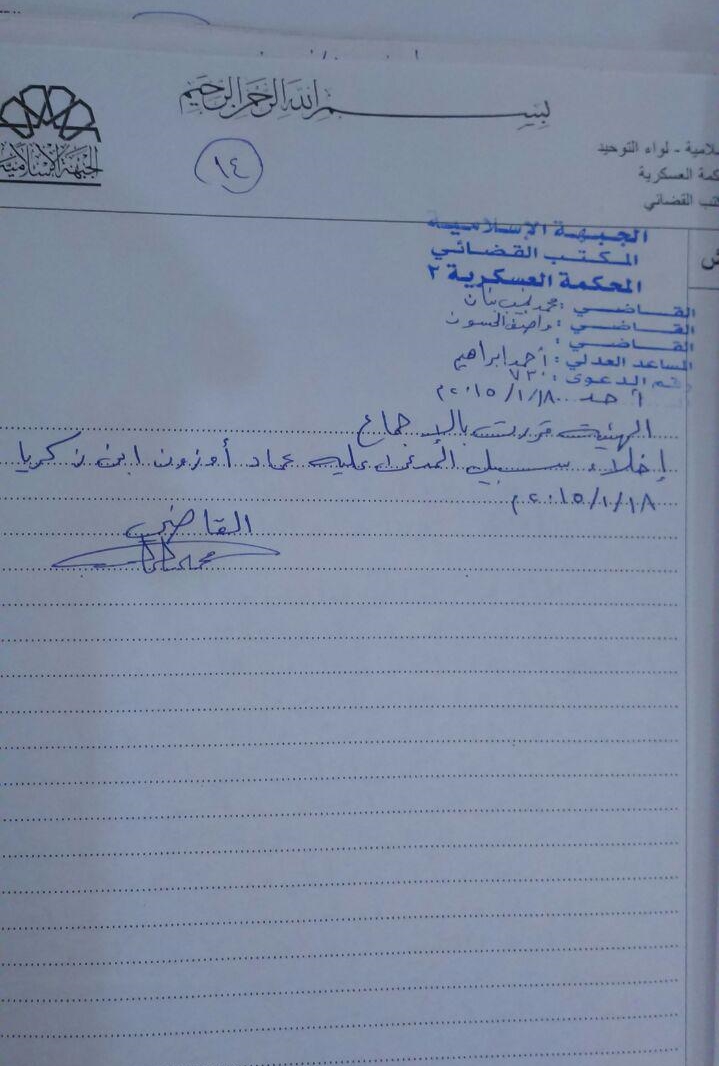 بسم الله الرحمن الرحيم
لامية - لواء التوحيد
كمة العسكرية
تب القضائي
الجبهة الإسلامية
١٤
الجبهة الإسلامية
المكتب القضائي
المحكمة العسكرية ٢
القاضي : محمد نجيب بنان
القاضي : واصف الحسون
القاضي :
المساعد العدلي : أحمد ابراهيم
رقم الدعوى : ٧٣٠
أحد ٢٠١٥/١/١٨م
الهيئة قررت بالاجماع
إخلاء سبيل المدعى عليه عماد أوزون ابن زكريا
٢٠١٥/١/١٨م
القاضي